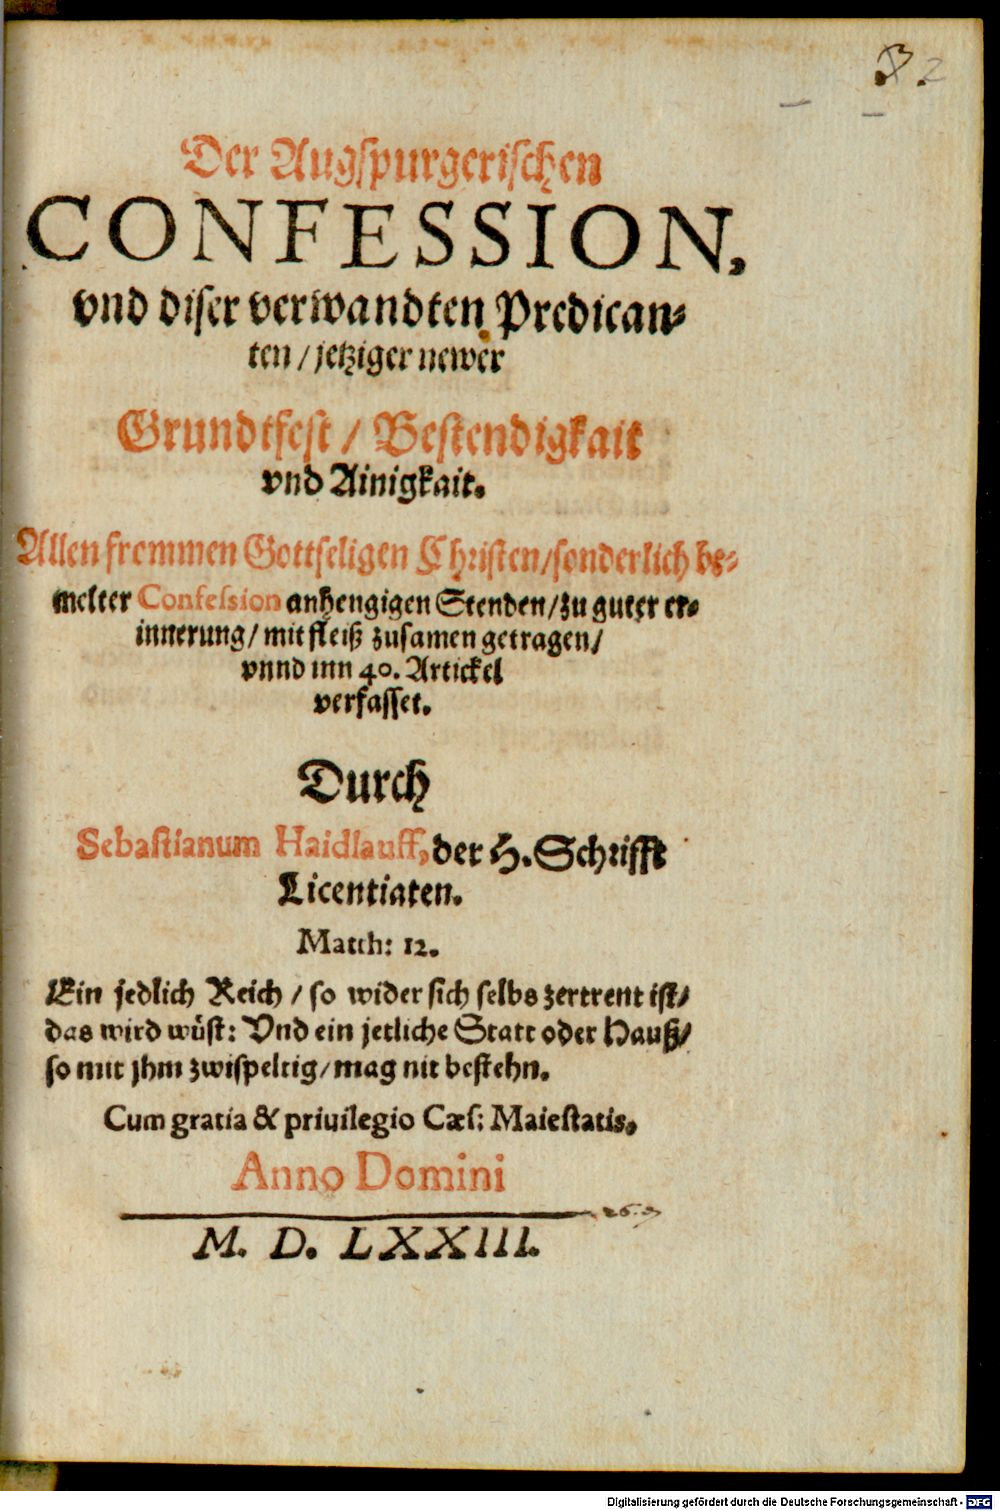 Der Augspurgerischen
CONFESSION,
vnd diser verwandten Predican⸗
ten / jetziger newer
Grundtfest / Bestendigkait
vnd Ainigkait.
Allen frommen Gottseligen Christen/sonderlich be⸗
melter Confession anhengigen Stenden/zu guter er⸗
innerung/ mit fleiß zusamen getragen/
vnnd inn 40. Artickel
verfasset.
Durch
Sebastianum Haidlauff, der H. Schrifft
Licentiaten.
Matth: 12.
Ein jedlich Reich / so wider sich selbs zertrent ist/
das wird wüst: Vnd ein jetliche Statt oder Hauß/
so mit jhm zwispeltig/mag nit bestehn.
Cum gratia & priuilegio Cæs: Maiestatis.
Anno Domini
M. D. LXXIII.
Digitalisierung gefördert durch die Deutsche Forschungsgemeinschaft - DFG